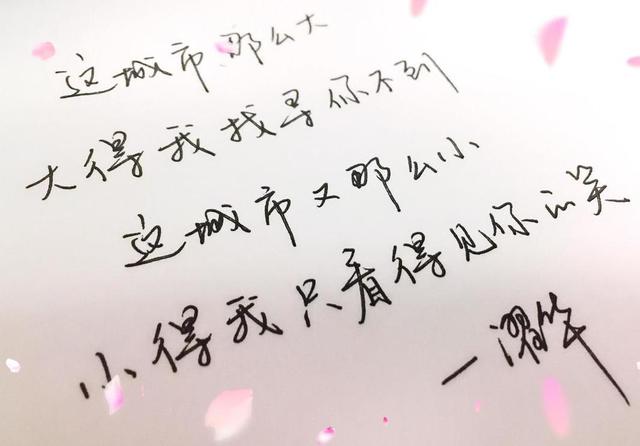 这城市那么大
大得我找寻你不到
这城市又那么小
小得我只看得见你的笑